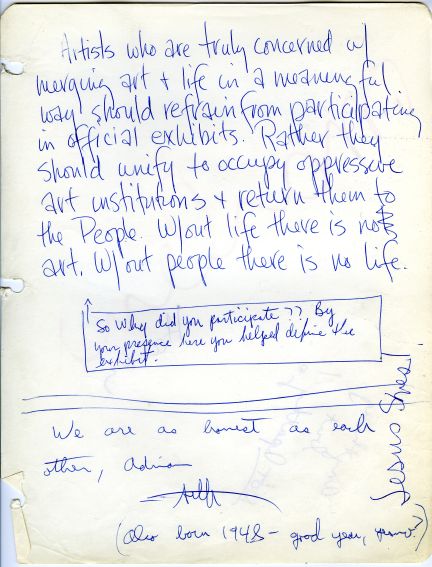 Artists who are truly concerned w/
merging art + life in a meaningful
way should refrain from participating
in official exhibits. Rather they
should unify to occupy oppressive
art institutions + return them to
the People. W/out life there is no
art. W/out people there is no life.
So why did you participate?? By
your presence here you helped define the
exhibit.
Jesus Saves!
We are as honest as each
other, Adrian
(Also born 1948 – good year,